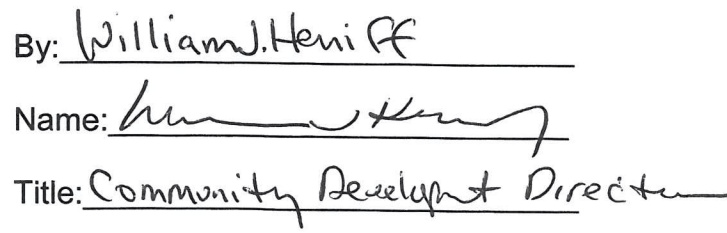 By: William J. Heniff
Name:
Title: Community Development Director